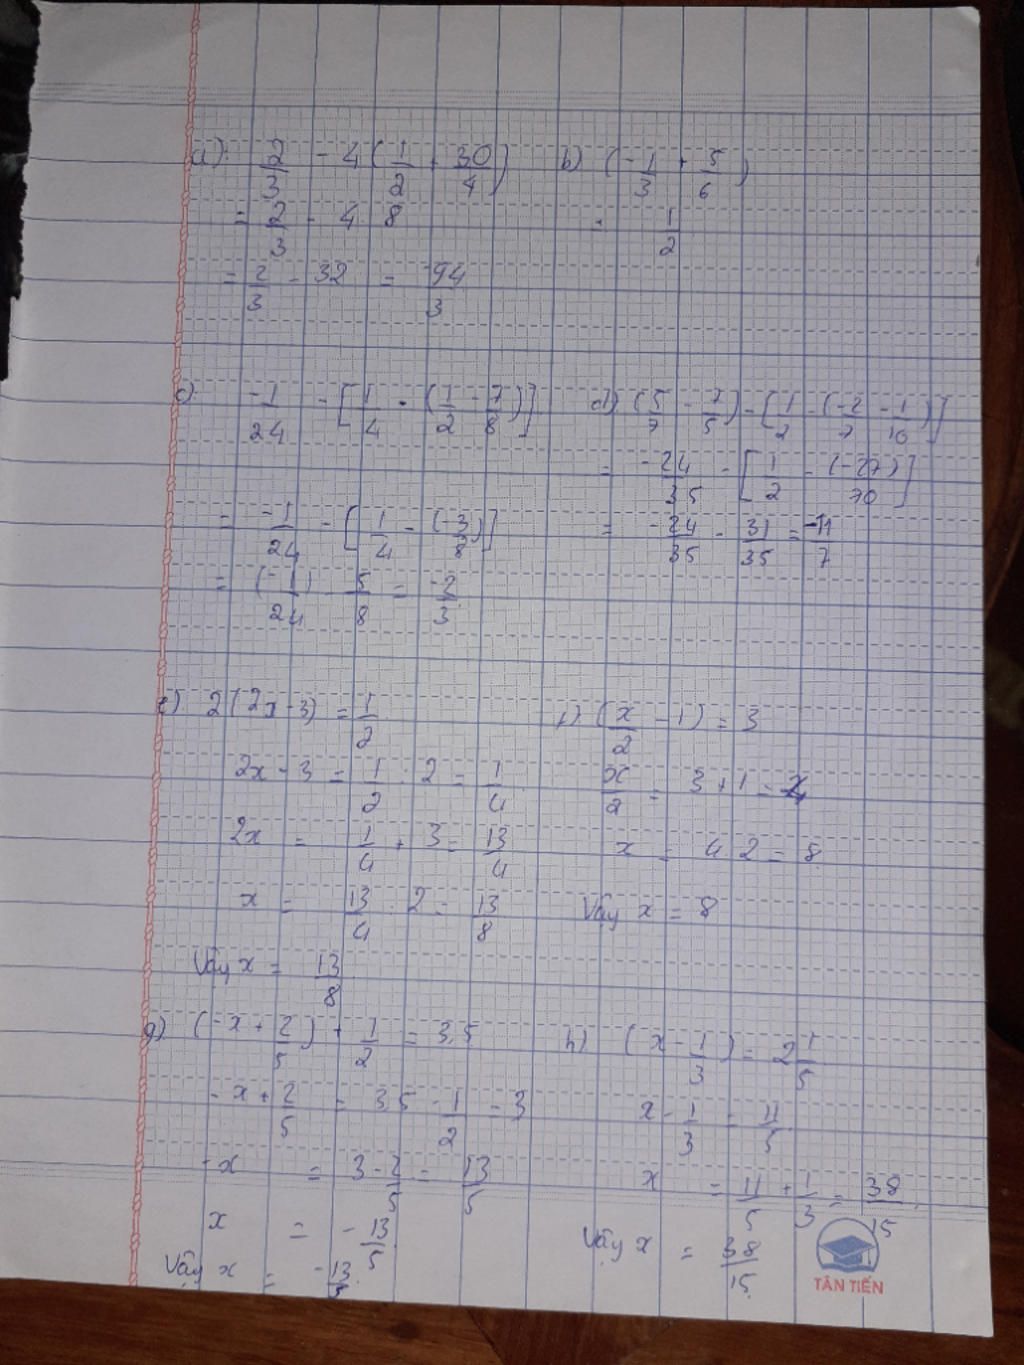 a) 2/3 - 4 (1/2 + 30/4)
= 2/3 - 4 . 8
= 2/3 - 32 = -94/3
b) (-1/3 + 5/6)
= 1/2
c) -1/24 - [1/4 - (1/2 - 7/8)]
= -1/24 - [1/4 - (-3/8)]
= (-1)/24 - 5/8 = -2/3
d) (5/7 - 7/5) - [1/2 - (-2/7 - 1/10)]
= -24/35 - [1/2 - (-27)/70]
= -24/35 - 31/35 = -11/7
e) 2 (2x - 3) = 1/2
2x - 3 = 1/2 : 2 = 1/4
2x = 1/4 + 3 = 13/4
x = 13/4 : 2 = 13/8
Vậy x = 13/8
f) (x/2 - 1) = 3
x/2 = 3 + 1 = 4
x = 4 . 2 = 8
Vậy x = 8
g) (-x + 2/5) + 1/2 = 3,5
-x + 2/5 = 3,5 - 1/2 = 3
-x = 3 - 2/5 = 13/5
x = -13/5
Vậy x = -13/5
h) (x - 1/3) = 2 1/5
x - 1/3 = 11/5
x = 11/5 + 1/3 = 38/15
Vậy x = 38/15
TÂN TIẾN